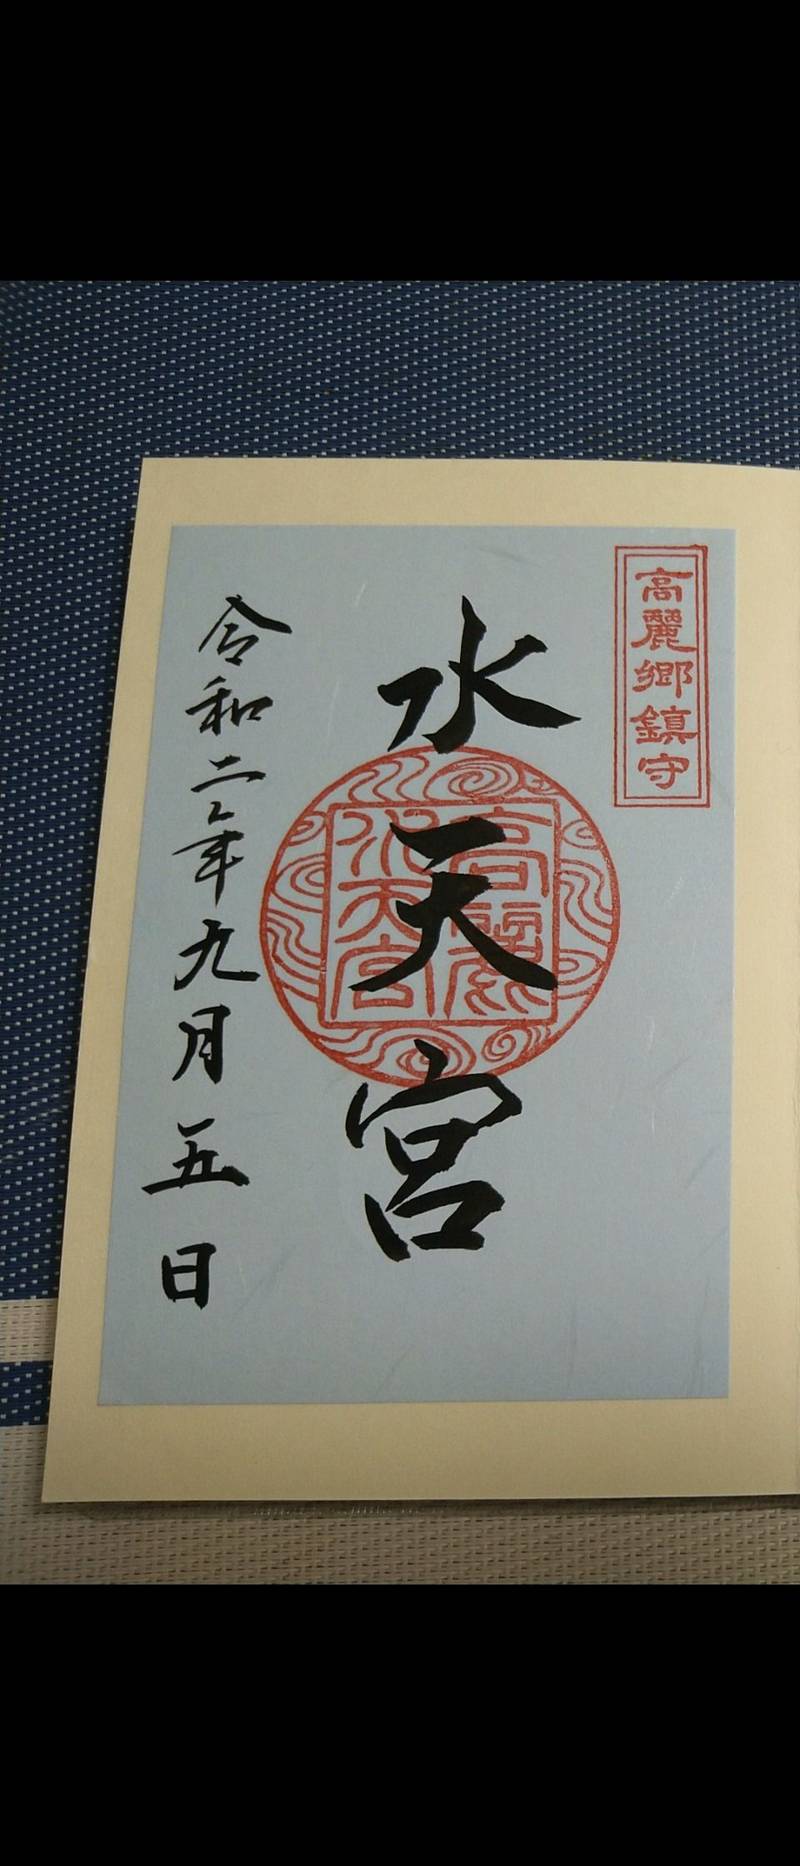 高麗郷鎮守
水天宮
高麗
水天宮
令和二年九月五日